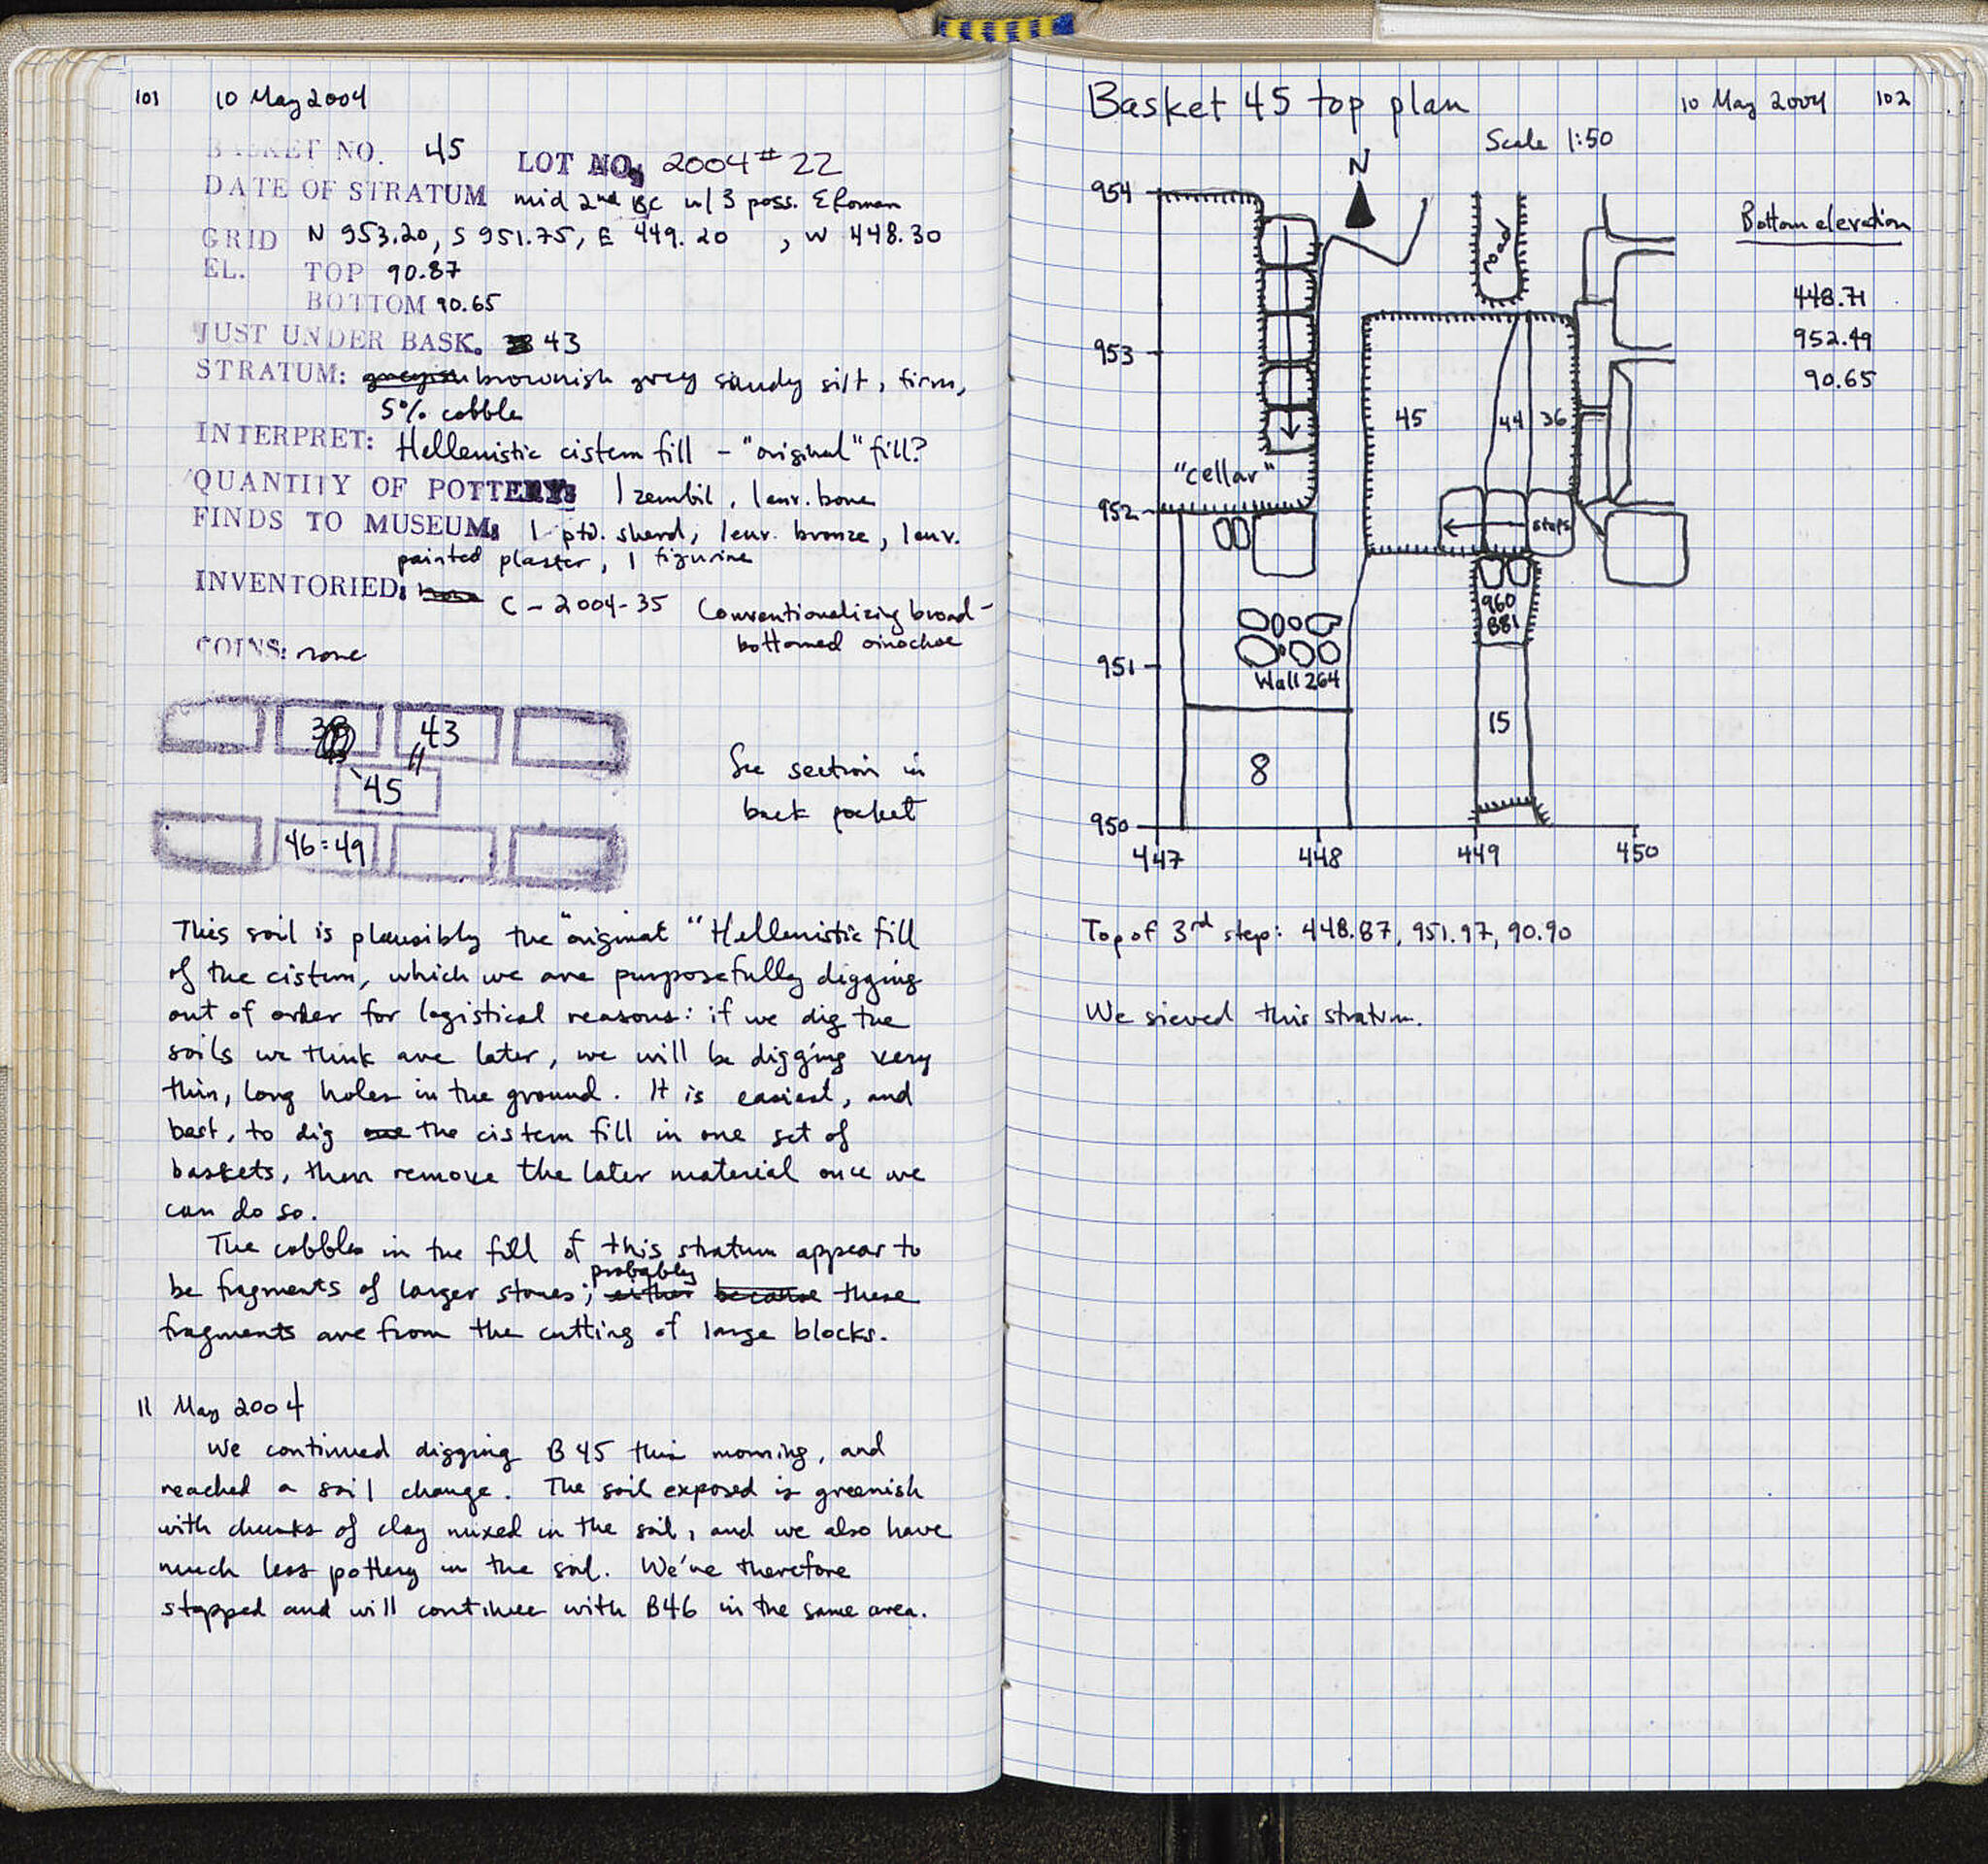 101 10 May 2004
BASKET NO. 45 LOT NO. 2004 # 22
DATE OF STRATUM mid 2nd BC w/ 3 poss. E Roman
GRID N 953.20, S 951.75, E 449.20 , W 448.30
EL. TOP 90.87
BOTTOM 90.65
JUST UNDER BASK. 43
STRATUM: greyish brownish grey sandy silt, firm,
5% cobble
INTERPRET: Hellenistic cistern fill - "original" fill?
QUANTITY OF POTTERY: 1 zembil, 1 env. bone
FINDS TO MUSEUM: 1 ptd. sherd, 1 env. bronze, 1 env.
painted plaster, 1 figurine
INVENTORIED: none C-2004-35 Conventionalizing broad-
bottomed oinochoe
COINS: none
38 43
45
46=49
See section in
back pocket
This soil is plausibly the "original" Hellenistic fill
of the cistern, which we are purposefully digging
out of order for logistical reasons: if we dig the
soils we think are later, we will be digging very
thin, long holes in the ground. It is easiest, and
best, to dig the cistern fill in one set of
baskets, then remove the later material once we
can do so.
The cobbles in the fill of this stratum appear to
probably
be fragments of larger stones; either because these
fragments are from the cutting of large blocks.
11 May 2004
We continued digging B45 this morning, and
reached a soil change. The soil exposed is greenish
with chunks of clay mixed in the soil, and we also have
much less pottery in the soil. We've therefore
stopped and will continue with B46 in the same area.
Basket 45 top plan 10 May 2004 102
Scale 1:50
N
954
road
Bottom elevation
448.71
952.49
90.65
953
45 44 36
"cellar"
952
steps
960
881
951
Wall 264
15
8
950
447 448 449 450
Top of 3rd step: 448.87, 951.97, 90.90
We sieved this stratum.